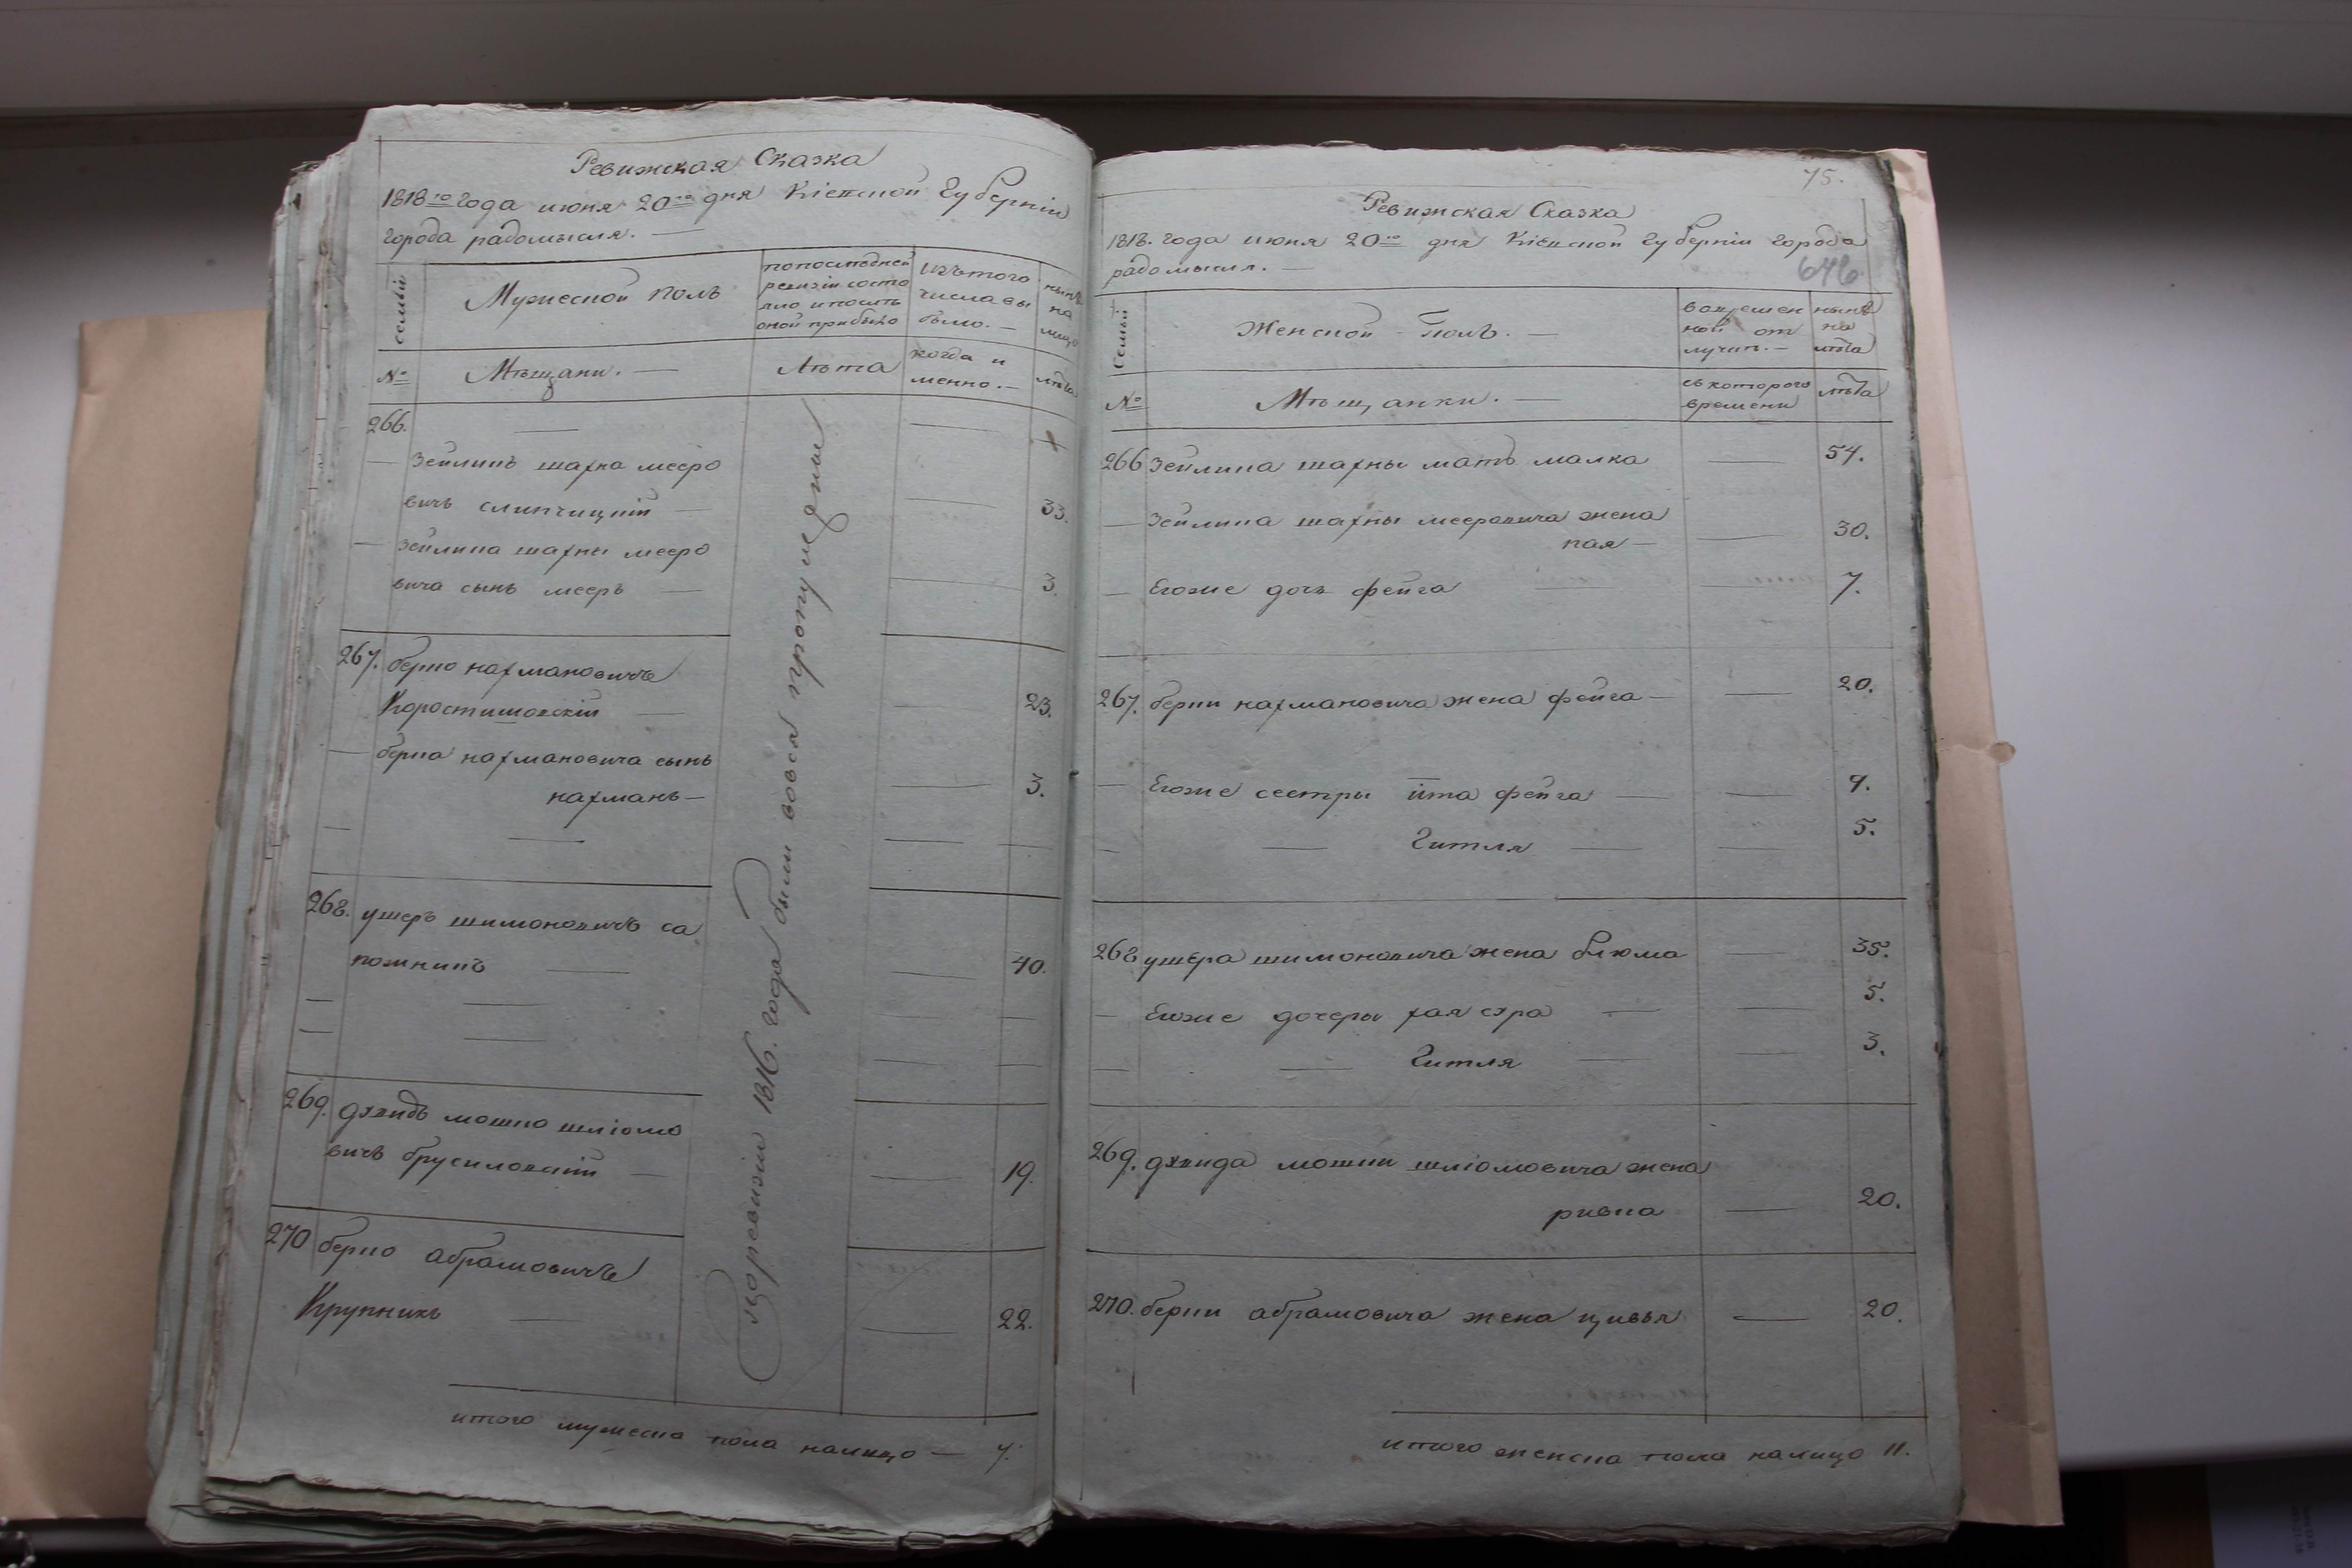 Ревижская Сказка
1818го года июня 20го дня Кіевской Губерніи
города радомысля. —
семьи
Мужеской полъ
попоследней
ревизіи состо
яло ипослъ
оной прибыло
Изътого
числа вы
было. —
нынѣ
на
лицо
№
Мѣщани. —
Лѣта
когда и
менно. —
лѣта
266. —
— Зейлинъ шахна мееро
вичъ слипчицкій — 33.
— Зейлина шахны мееро
вича сынъ мееръ — 3.
267. берко нахмановичъ
Коростишовскій — 23.
— берка нахмановича сынъ
нахманъ — 3.
— —
268. ушеръ шимоновичъ са
пожникъ — 40.
— —
— —
269. дэвидъ мошко шліомо
вичъ брусиловскій — 19.
270 берко абрамовичъ
Крупникъ — 22.
Поревизіи 1816. года были вовся пропущены
итого мужеска пола налицо — 7.
75.
Ревижская Сказка
1818. года июня 20го дня Кіевской губерніи города
радомысля. —
646
Семьи
Женской полъ. —
вовремен
ной от
лучит. —
нынѣ
на
лѣта
№
Мѣщанки. —
съкоторого
времени
лѣта
266 Зейлина шахны мать малка — 54.
— Зейлина шахны мееровича жена
хая — 30.
— Егоже дочь фейга — 7.
267. берки нахмановича жена фейга — 20.
— Егоже сестры ита фейга — 9.
— — Гитля — 5.
268 ушера шимоновича жена блюма — 35.
— Егоже дочеры хая сура — 5.
— — Гитля — 3.
269. дэвида мошки шліомовича жена
ривка — 20.
270. берки абрамовича жена цивья — 20.
итого женска пола налицо 11.